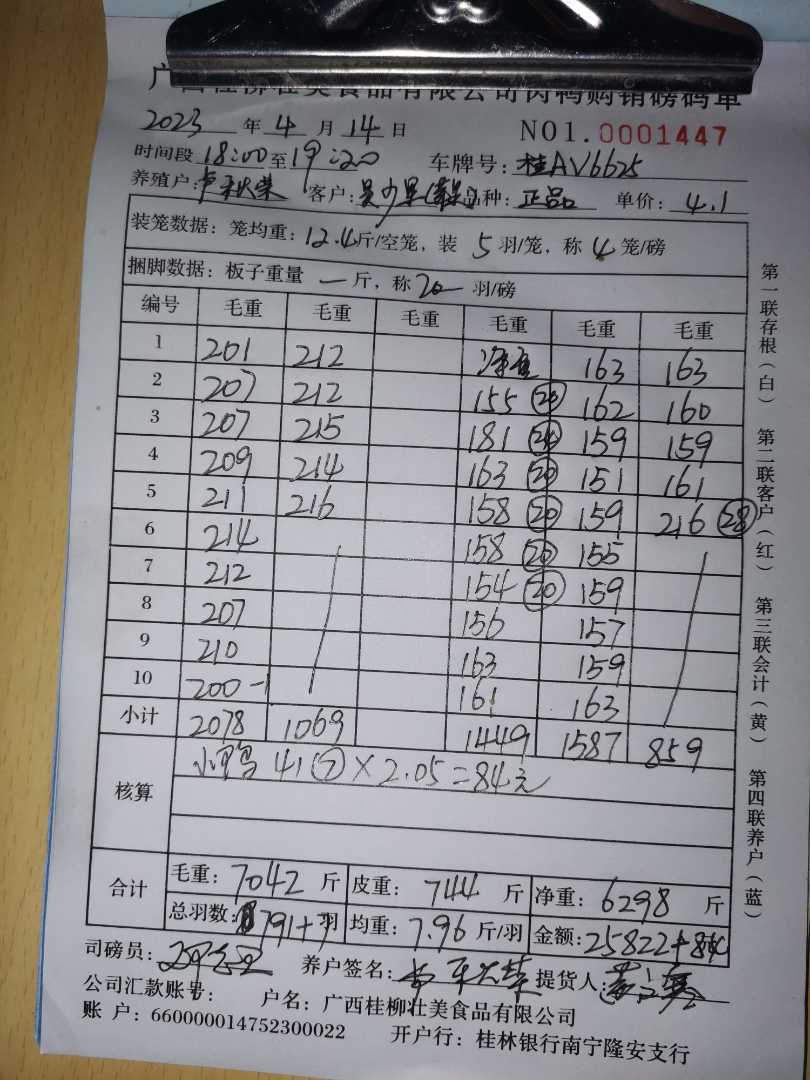 广西桂柳壮美食品有限公司肉鸭购销磅码单
2023 年 4 月 14 日 NO1.0001447
时间段 18:00 至 19:20 车牌号: 桂AV6625
养殖户: 客户: 品种: 正品 单价: 4.1
装笼数据: 笼均重: 12.4 斤/空笼, 装 5 羽/笼, 称 4 笼/磅
捆脚数据: 板子重量 一 斤, 称 20 羽/磅
编号 毛重 毛重 毛重 毛重 毛重 毛重
1 201 212 净重 163 163
2 207 212 155 20 162 160
3 207 215 181 24 159 159
4 209 214 163 20 151 161
5 211 216 158 20 159 216 28
6 214 158 20 155
7 212 154 20 159
8 207 156 157
9 210 163 159
10 200-1 161 163
小计 2078 1069 1449 1587 859
核算 小鸭 41 7 × 2.05 = 84元
合计 毛重: 7042 斤 皮重: 744 斤 净重: 6298 斤
总羽数: 791+7 羽 均重: 7.96 斤/羽 金额: 25822+84
司磅员: 养户签名: 提货人:
公司汇款账号: 户名: 广西桂柳壮美食品有限公司
账 户: 660000014752300022 开户行: 桂林银行南宁隆安支行
第一联存根(白) 第二联客户(红) 第三联会计(黄) 第四联养户(蓝)